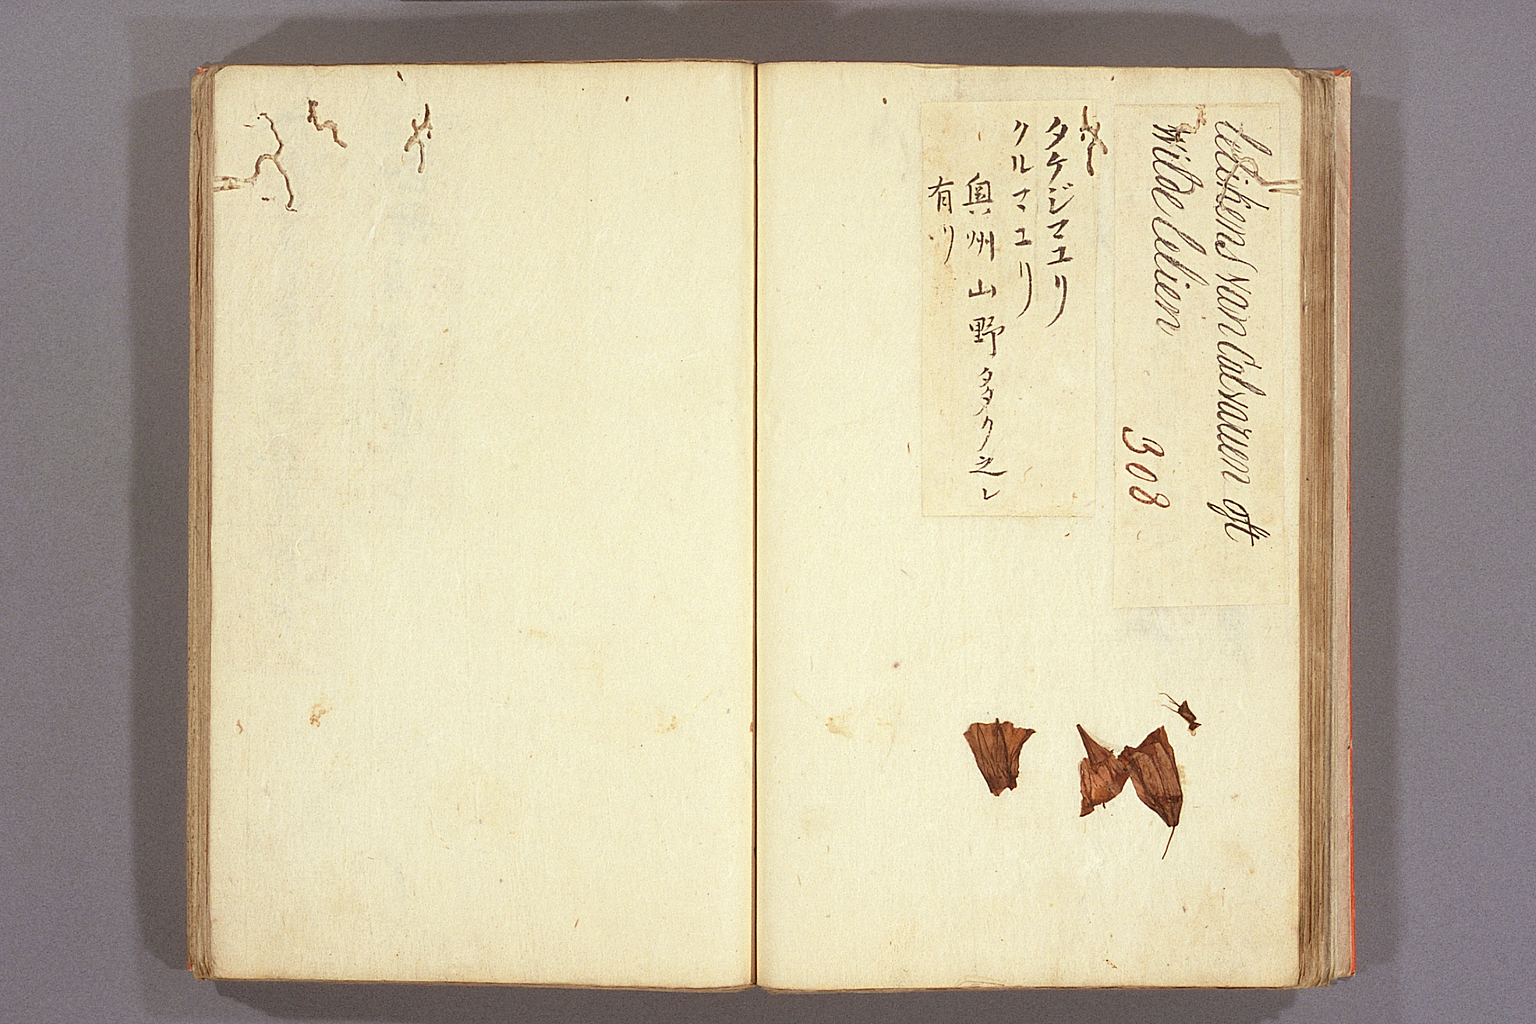 lelikens van Calvaruen oft
wilde lelien
308
タケジマユリ
クルマユリ
奥州山野多ク之レ
有リ